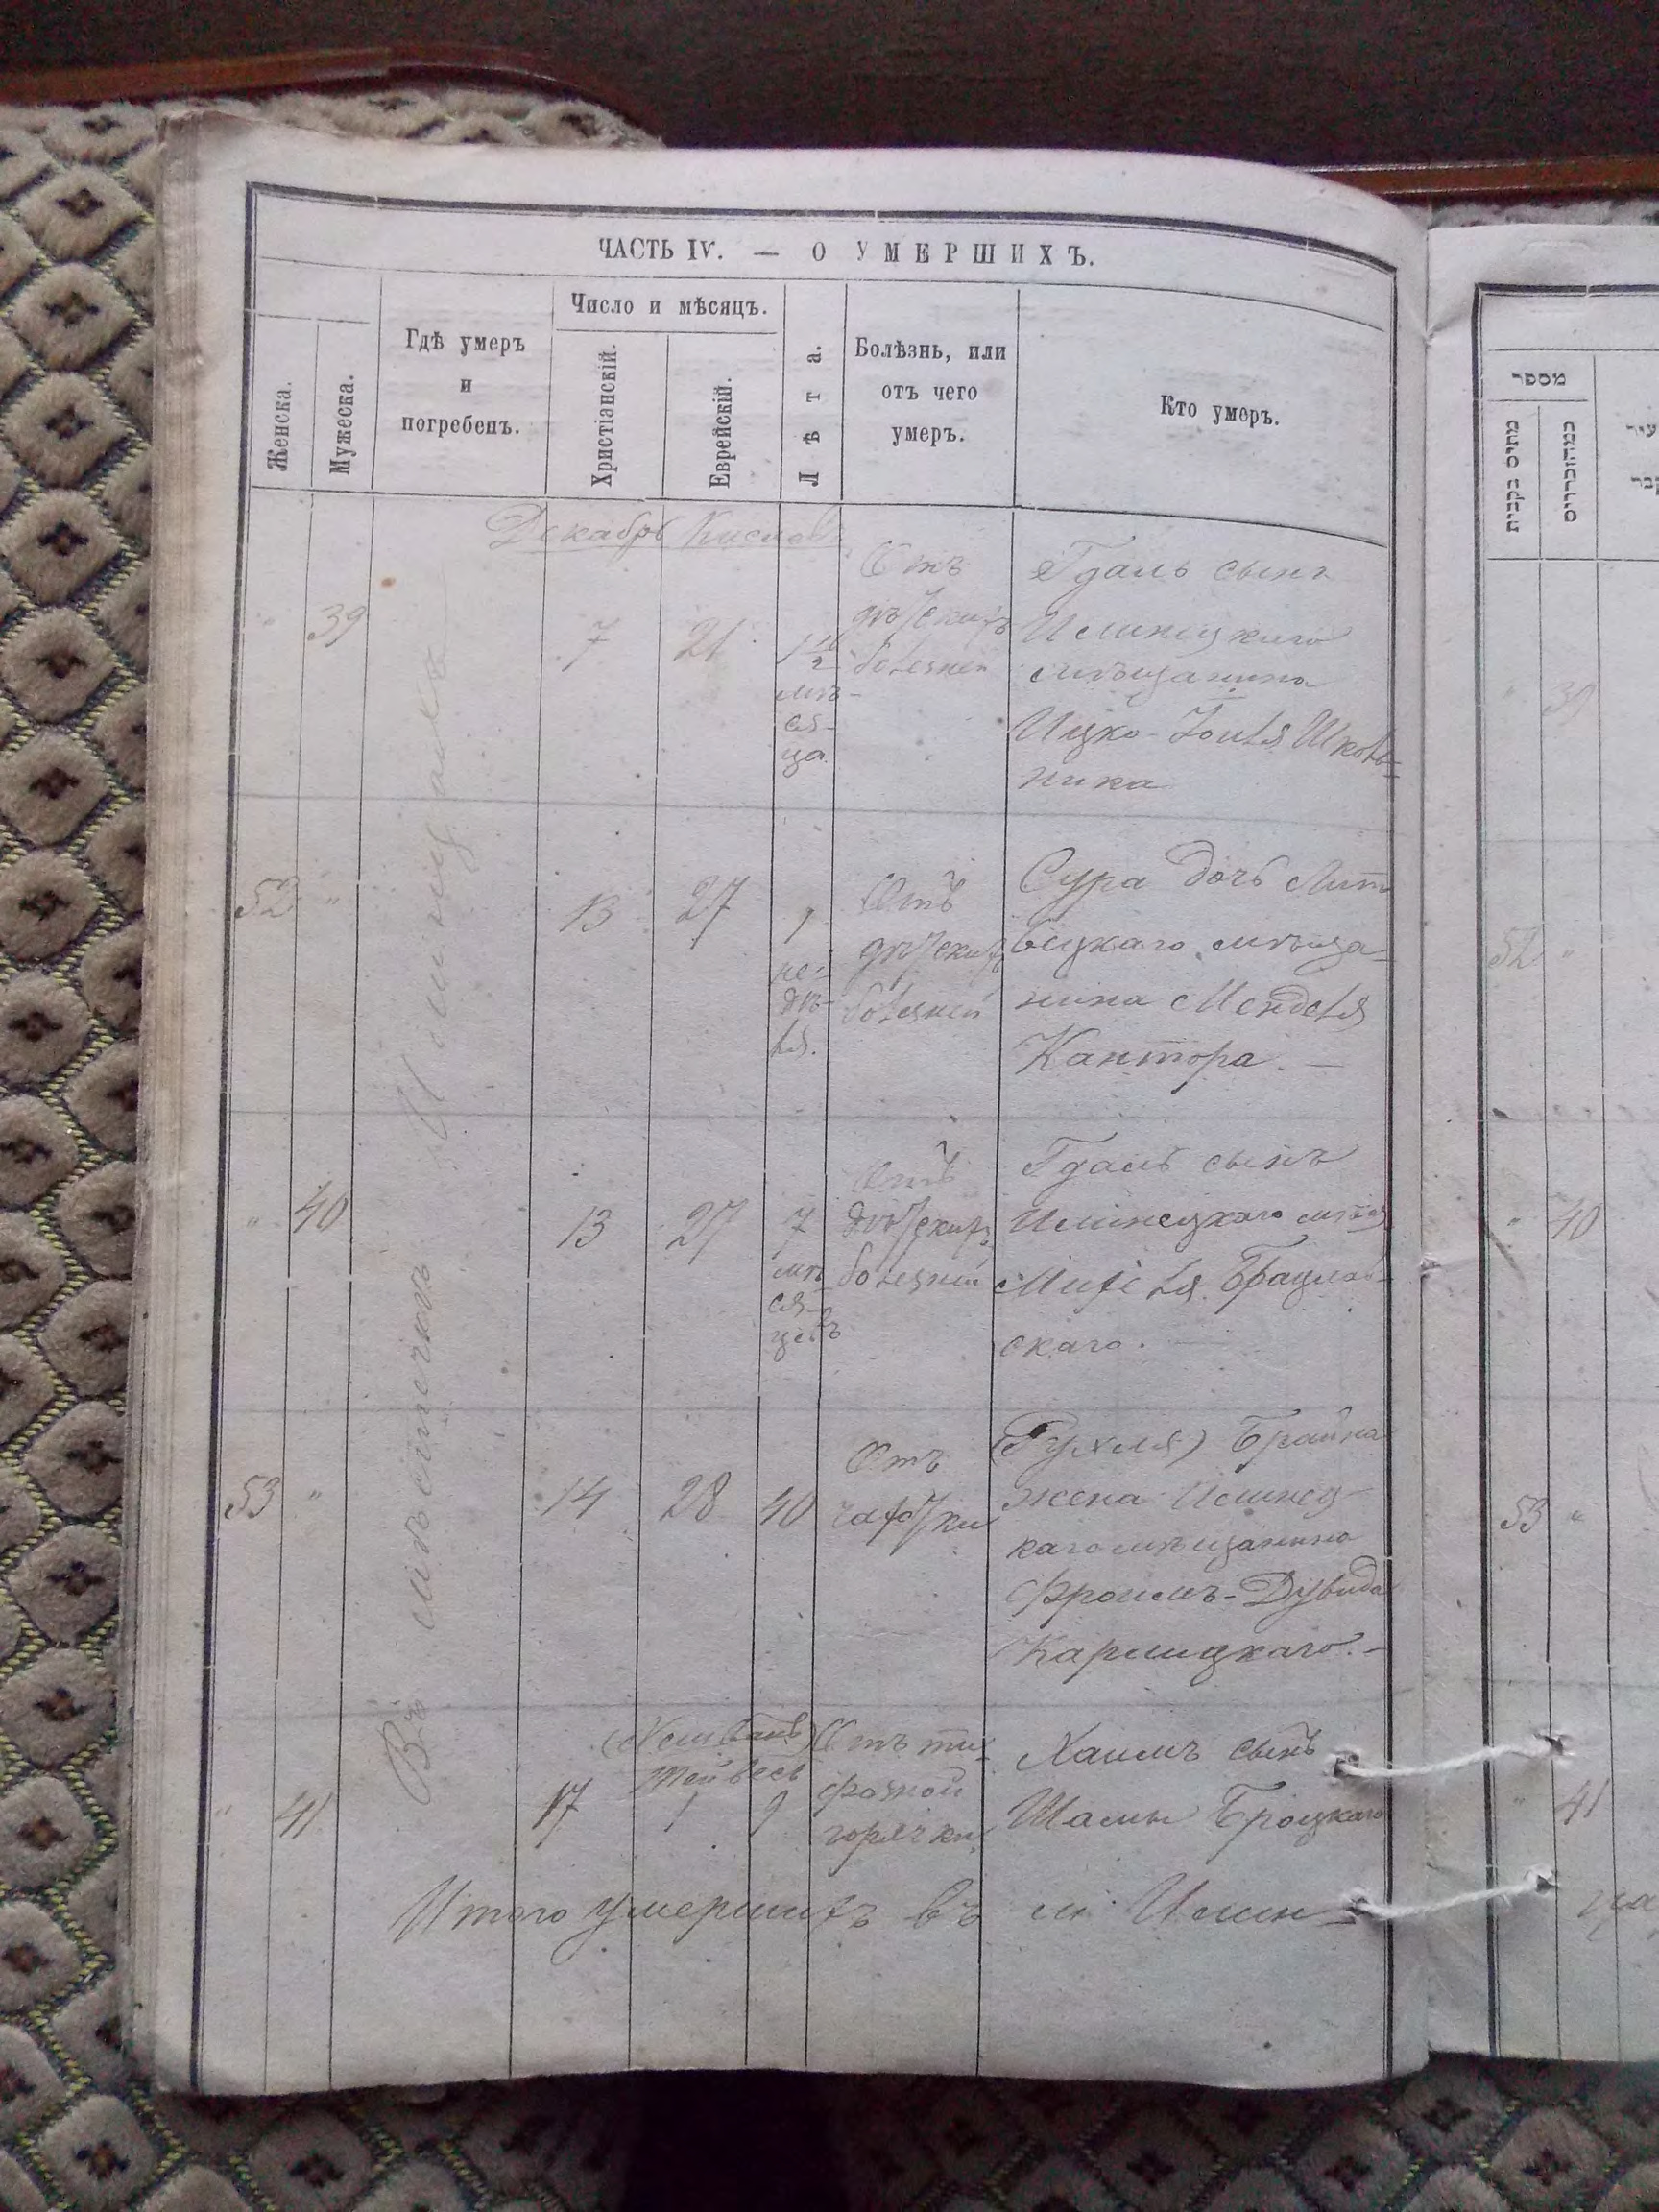 ЧАСТЬ IV. — О УМЕРШИХЪ.
Женска.
Мужеска.
Гдѣ умеръ
и
погребенъ.
Число и мѣсяцъ.
Христіанскій.
Еврейскій.
Лѣта.
Болѣзнь, или
отъ чего
умеръ.
Кто умеръ.
Декабрь Кислев
Въ мѣстечкѣ
" 39
7 21
1 1/2
мѣ-
ся-
ца.
Отъ
дѣтскихъ
болезней
Гдаль сынъ
Илинецкаго
мѣщанина
Ицко-Іоиля Школь-
ника
52 "
13 27
1
не-
дѣ-
ля.
Отъ
дѣтскихъ
болезней
Сура дочь Лит
вецкаго мѣща-
нина Менделя
Кантора. —
" 40
13 27
7
мѣ
ся-
цевъ
Отъ
дѣтскихъ
болезней
Гдаль сынъ
Илинецкаго мѣщ
Михеля Брацлав-
скаго. —
53 "
14 28 40
Отъ
чахотки
(Рухля) Брайна
жена Илинец-
каго мѣщанина
Фроимъ-Дувида
Карлицкаго. -
" 41
17
Тейвесъ
1 9
Отъ ти-
фозной
горячки
Хаимъ сынъ
Шамы Броцкаго
Итого умершихъ въ м. Илин-
מספר
מתים נקבות
39
52 "
" 40
53 "
" 41